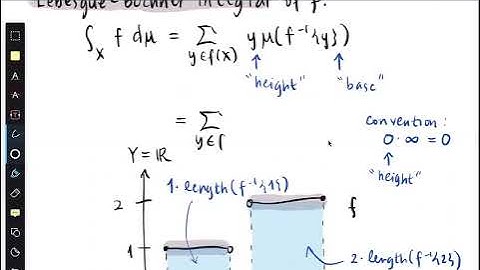 Lebesgue-Bochner integral of f:
∫_X f dμ = ∑_{y∈f(X)} y μ(f⁻¹{y})
"height" "base"
= ∑_{y∈f
convention:
0·∞ = 0
"height"
Y = ℝ
1·length(f⁻¹{1})
2
f
1
2·length(f⁻¹{2})